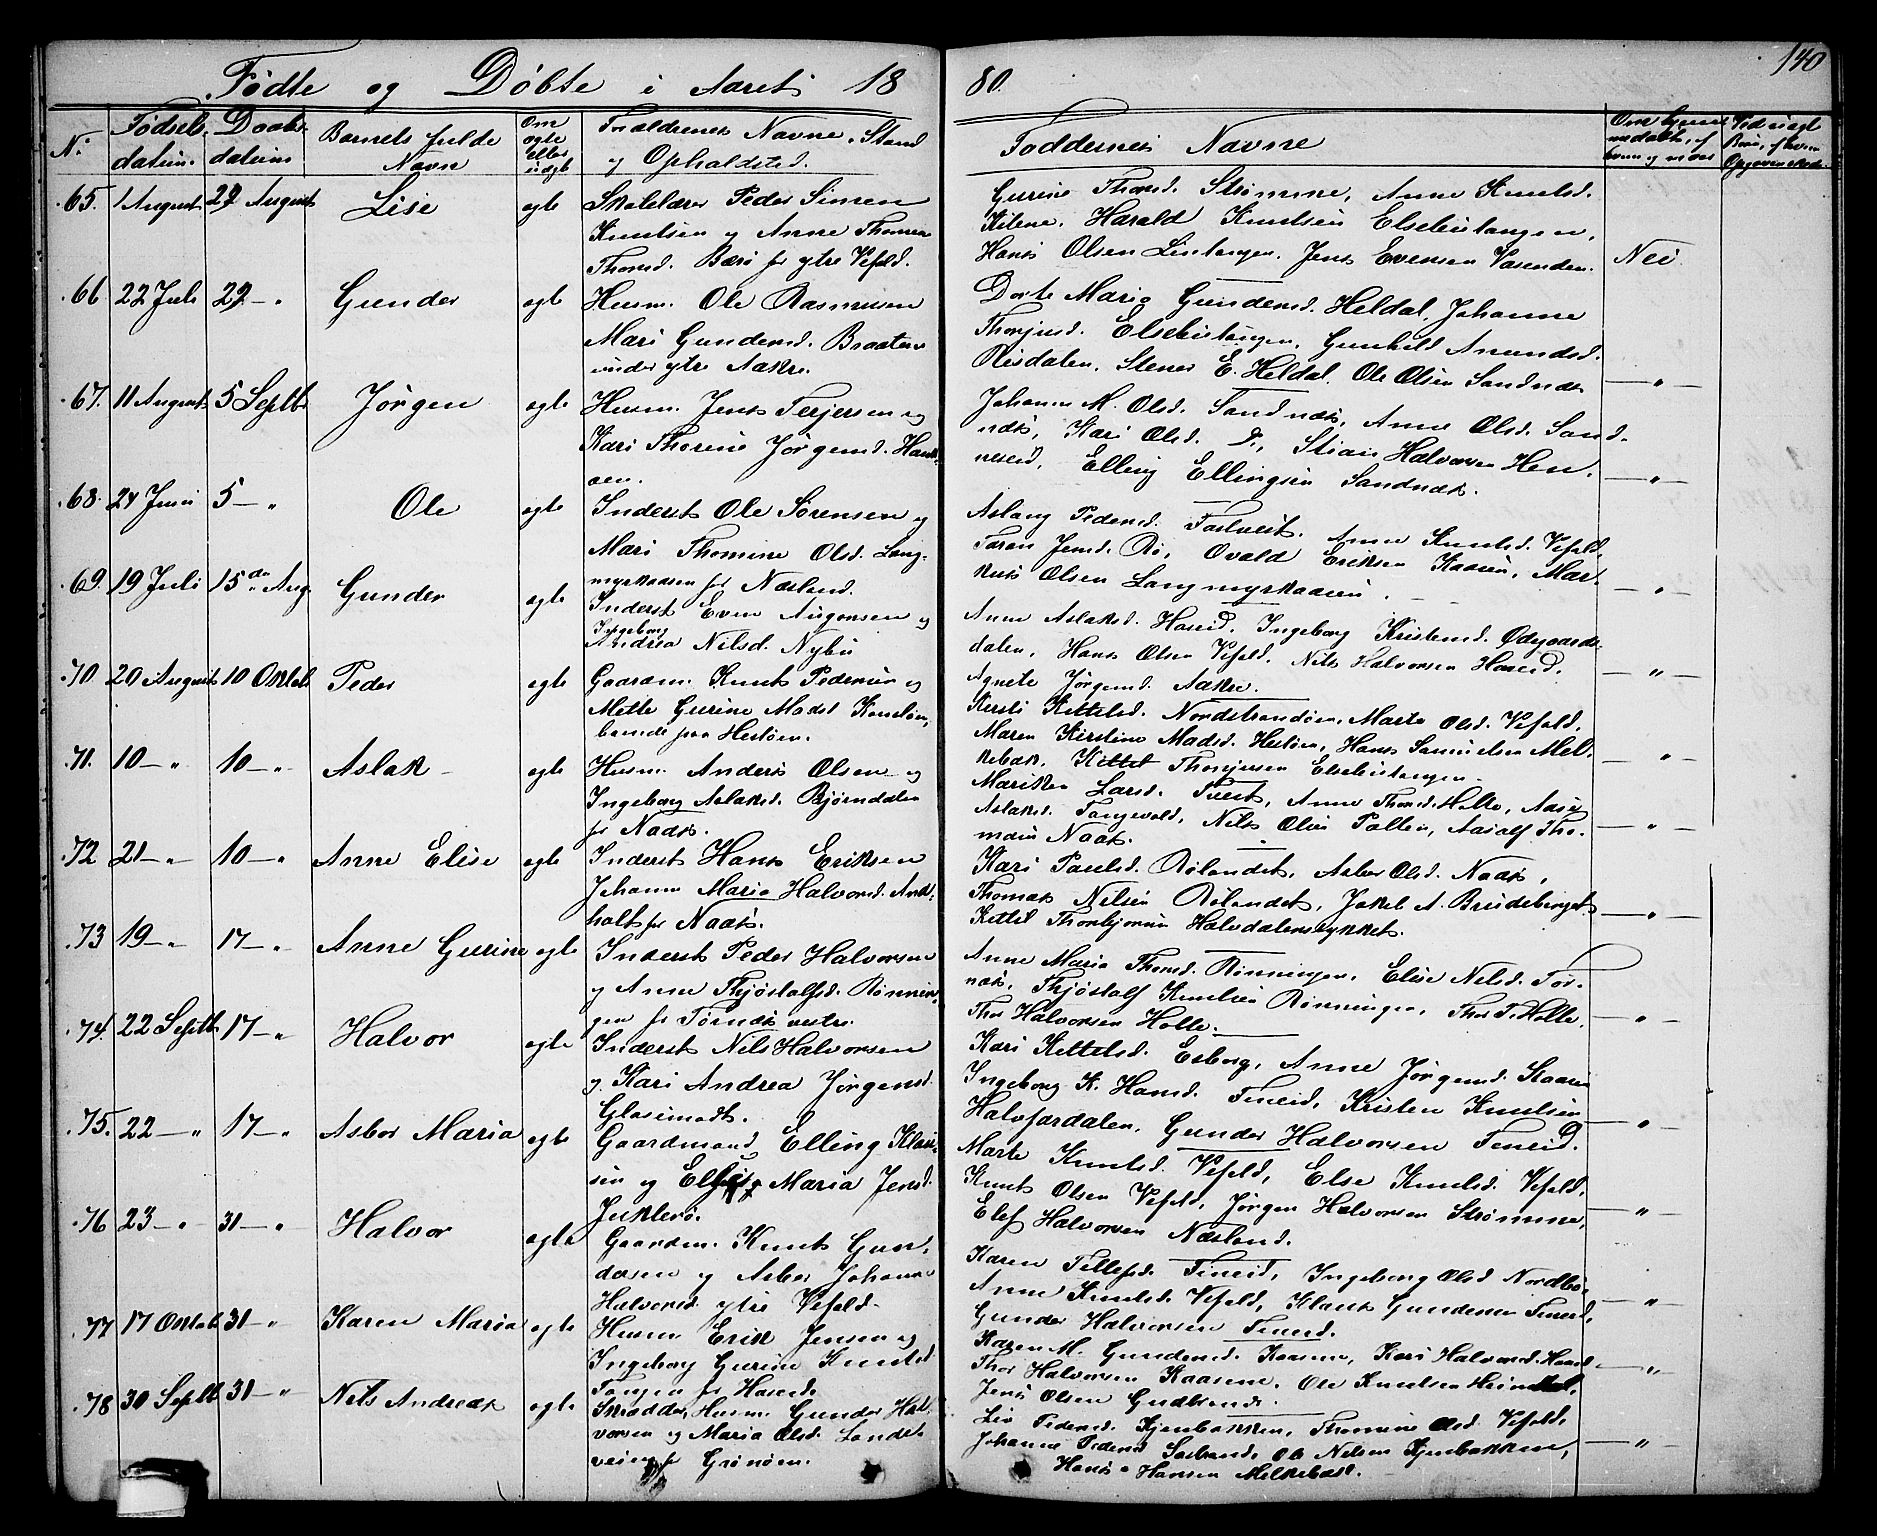 Fødte og Døbte i Aaret 18
80.
140
No
Fødsels
datum.
Daabs
datum
Barnets fulde
Navn
Om
ægte
eller
uægt
Forældrenes Navne, Stand
og Opholdsted.
Faddernes Navne
65. 1 August 29 August Lise egte Skolelærer Peder Simen
Knutsen og Anne Thomine
Thorsd. Bærø for ytre Vefald.
Gurine Thorsd. Strømme, Anne Knutsd.
Kilene, Harald Knutsen Elsebutangen,
Hans Olsen Lintangen, Jens Evensen Vasenden. Nei.
66 22 Juli 29 — " Gunder egte Husm. Ole Rasmusen
Mari Gundersd. Braatene
under ytre Aakre.
Dorte Maria Gundersd. Heldal, Johanne
Thorjusd. Elsebutangen, Gunhild Anundsd.
Risdalen, Stener E. Heldal, Ole Olsen Sandnæs — " —
67. 11 August 5 Septb Jørgen egte Husm. Jens Terjersen og
Kari Thorine Jørgensd. Hauk-
øen.
Johanne M. Olsd. Sandnæs, Anne Olsd. Sand-
næs, Kari Olsd. D., Stian Halvorsen Hen-
neseid, Elling Ellingsen Sandnæs. — " —
68. 24 Juni 5 — " Ole egte Inderst Ole Sørensen og
Mari Thomine Olsd. Lang-
myrkaasen for Næsland.
Aslaug Pedersd. Tastveit, Anne Knutsd. Vefald,
Taran Jensd. Rø, Ovald Eriksen Kaasen, Mar-
kus Olsen Langmyrkaasen. — " —
69. 19 Juli 15 de Aug. Gunder egte Inderst Even Augonsen og
Ingeborg
Andrea Nilsd. Nybu
Anne Aslaksd. Haseid, Ingeborg Kristensd. Ødegaards-
dalen, Hans Olsen Vefald, Nils Halvorsen Haseid.
Agnete Jørgensd. Aakre. — " —
70. 20 August 10 Oktob. Peder egte Gaardm. Knut Pedersen og
Mette Gurine Madsd
boende paa Hestøen.
Kersti Kittelsd. Nordstrandøen, Marte Olsd. Vefald,
Maren Kirstine Madsd. Hestøen, Hans Samuelsen Mel-
kebæk, Kittel Thorjersen Elsebutangen. — " —
71. 10 — " 10 — " Aslak egte Husm. Anders Olsen og
Ingeborg Aslaksd. Bjørndalen
for Naas.
Mariken Larsd. Tveit, Anne Thorsd. Holte, Aase
Aslaksd. Tangevald, Nils Olsen Pollen, Aasolf Tho-
masen Naas. — " —
72 21 — " 10 — " Anne Elise egte Inderst Hans Eriksen
Johanne Maria Halvorsd.
holt for Naas.
Kari Paulsd. Rølandet, Asbor Olsd. Naas,
Thomas Nilsen Rølandet, Jakob A. Brudeberget
Kittil Thorbjørnsen Halvdalenstykket. — " —
73 19 — " 17 — " Anne Gurine egte Inderst Peder Halvorsen
og Anne Thjøstolfsd. Rønnin-
gen for Tørnæs vestre.
Anne Maria Thorsd. Rønningen, Elise Nilsd. Tør-
næs, Thjøstolf Knutsen Rønningen, Thor T. Holte,
Thor Halvorsen Holte. — " —
74. 22 Septb 17 — " Halvor egte Inderst Nils Halvorsen
og Kari Andrea Jørgensd.
Glasimodt.
Kari Kittelsd. Esborg, Anne Jørgensd. Kaasen
Ingeborg K. Hansd. Fineid, Kristen Knutsen
Halvfardalen, Gunder Halvorsen Fineid. — " —
75. 22 — " 17 — " Asbor Maria egte Gaardmand Elling Klau-
sen og Maria Jensd.
Juklerø.
Marte Knutsd. Vefald, Else Knutsd. Vefald,
Knut Olsen Vefald, Jørgen Halvorsen Strømme,
Elef Halvorsen Næsland. — " —
76 23 — " 31 — " Halvor egte Gaardm. Knut Gun-
dersen og Asbor Johanne
Halvorsd. ytre Vefald.
Karen Tellefsd. Fineid, Ingeborg Olsd Nordbø,
Anne Knutsd. Vefald, Klaus Gundersen Fineid,
Gunder Halvorsen Fineid. — " —
77 17 Oktob 31 — " Karen Maria egte Husm. Erik Jensen og
Ingeborg Gurine Knutsd
Tangen for Haseid.
Karen M. Gundersd. Kaasene, Kari Halvorsd. Haseid
Thor Halvorsen Kaasene, Ole Knutsen
Jens Olsen Gudbrands. — " —
78 30 Septb 31 — " Nils Andreas egte Skrædder, Husm. Gunder Hal-
vorsen og Maria Olsd. Lands-
veien for Grønøen.
Liv Pedersd. Kjenbakken, Thomine Olsd. Vefald,
Johanne Pedersd , Ole Nilsen Kjenbakken,
Hans Hansen Melkebæk. — " —